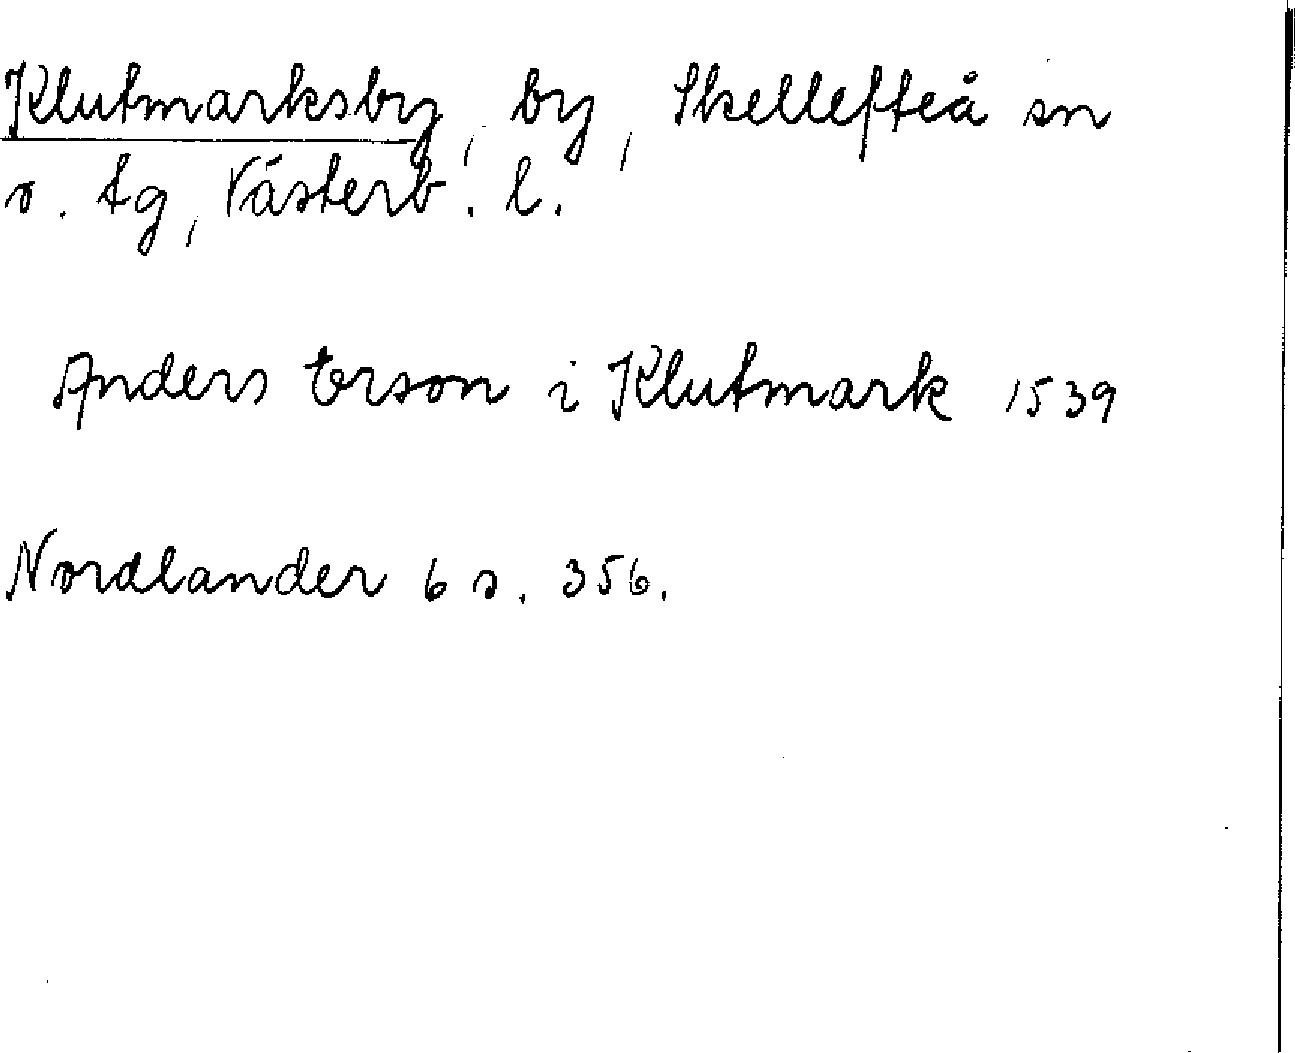 Klutmarksby, by, Skellefteå sn
o. tg, Västerb. l.
Anders Erson i Klutmark 1539
Nordlander 6 s. 356.